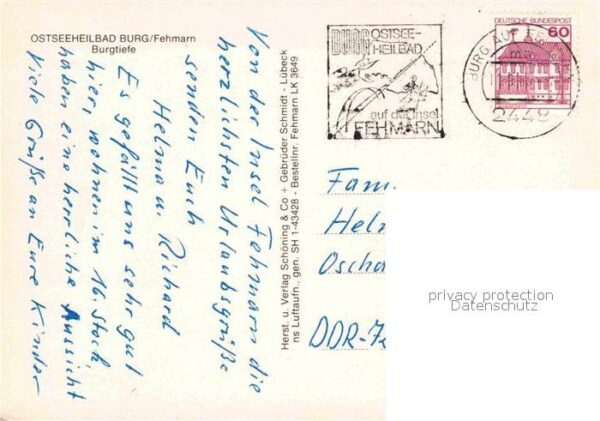 OSTSEEHEILBAD BURG/Fehmarn
Burgtiefe
Von der Insel Fehmarn die
herzlichsten Urlaubsgrüße
senden Euch
Helma u. Richard
Es gefällt uns sehr gut
hier, wohnen im 16. Stock
haben eine herrliche Aussicht
Viele Grüße an Eure Kinder
Herst. u. Verlag Schöning & Co + Gebrüder Schmidt - Lübeck
ns Luftaufn., gen. SH 1-43428 - Bestellnr. Fehmarn LK 3649
BURG OSTSEE-
HEILBAD
auf der Insel
FEHMARN
BURG AUF FE
2448
DEUTSCHE BUNDESPOST
60
Fam.
Hel
Oscha
DDR-7
privacy protection
Datenschutz